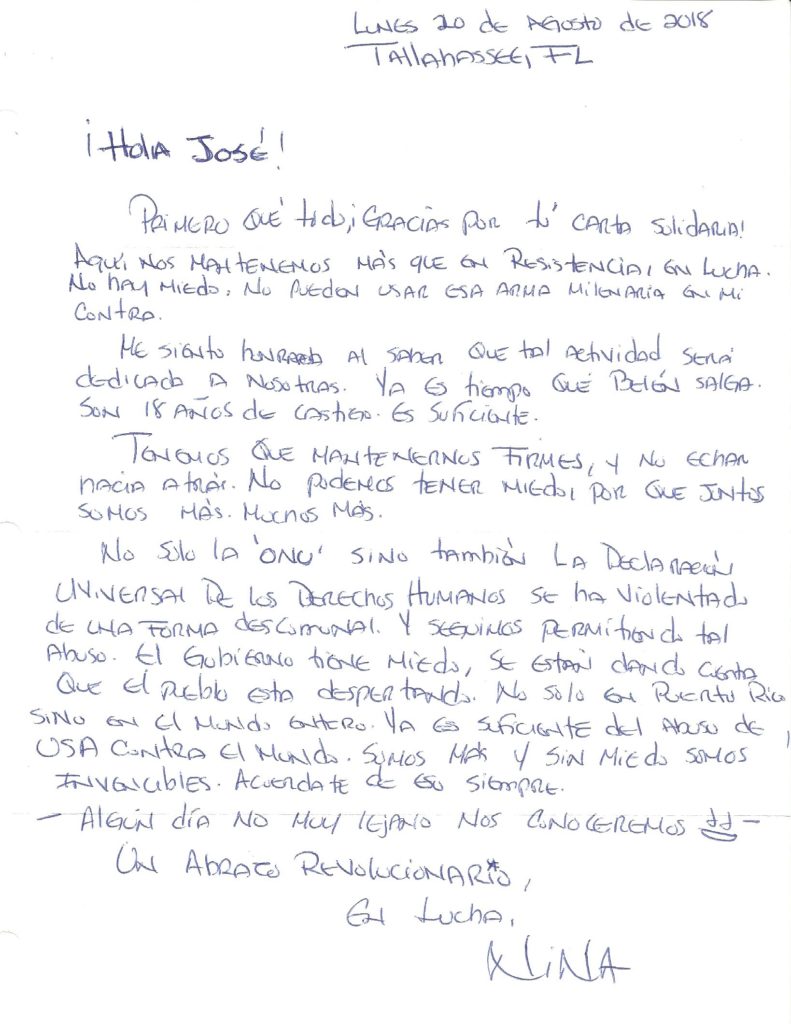 Lunes 20 de Agosto de 2018
Tallahassee, FL
¡Hola José!
Primero qué todo, ¡Gracias por tú carta solidaria!
Aquí nos mantenemos más que en Resistencia, en lucha.
No hay miedo, no pueden usar esa arma milenaria en mi
contra.
Me siento honrada al saber que tal actividad será
dedicada a nosotras. Ya es tiempo que Belén salga.
Son 18 años de castigo. Es suficiente.
Tenemos que mantenernos firmes, y no echar
hacia atrás. No podemos tener miedo, por que juntos
somos más. Muchos más.
No solo la 'ONU' sino también la Declaración
Universal de los Derechos Humanos se ha violentado
de una forma descomunal. Y seguimos permitiendo tal
abuso. El Gobierno tiene miedo, se están dando cuenta
que el pueblo esta despertando. No solo en Puerto Rico,
sino en el mundo entero. Ya es suficiente del abuso de
USA contra el mundo. Somos más y sin miedo somos
invencibles. Acuerdate de eso siempre.
- Algún día no muy lejano nos conoceremos -
Un Abrazo Revolucionario,
En lucha,
Nina